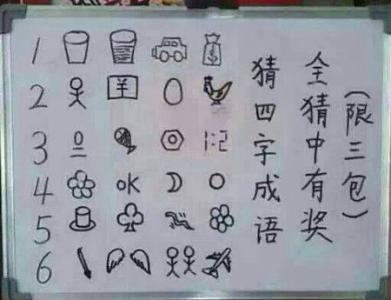 (限三包)
全猜中有奖
猜四字成语
1
2 ¥
3 1:2
4 OK
5
6